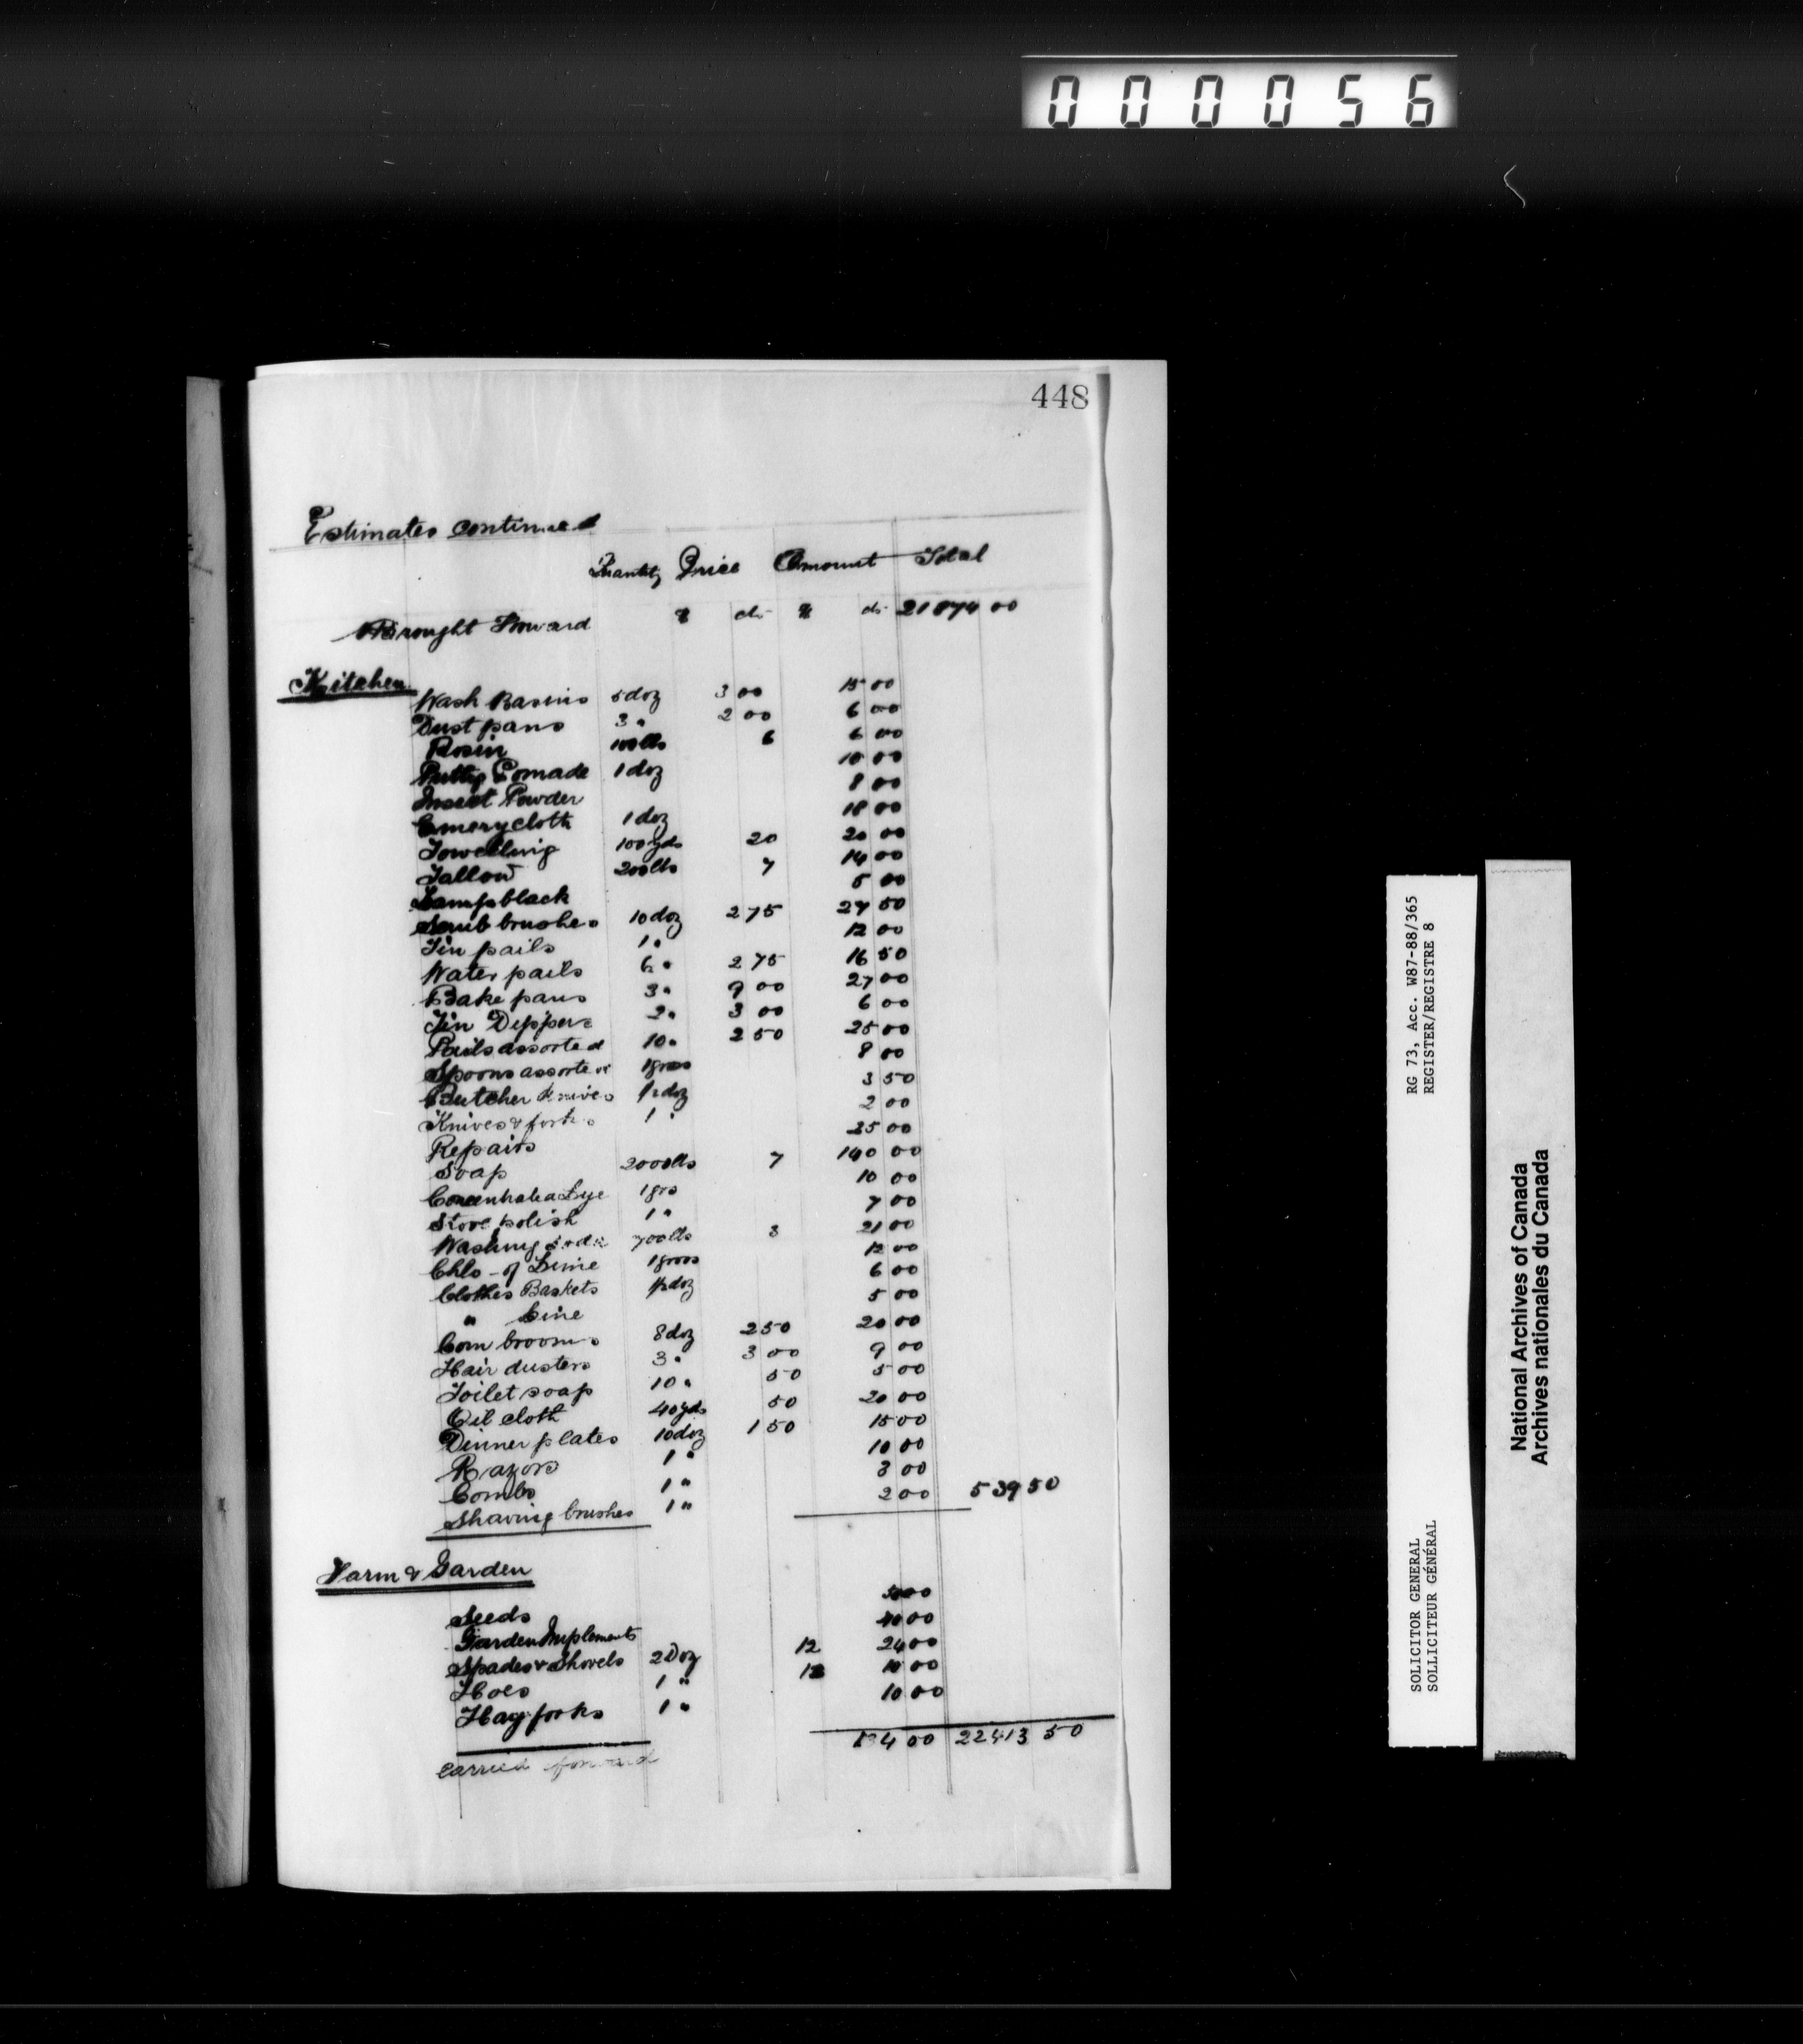 000056
448
Estimates continued
Quantity Price Amount Total
Brought Forward $ cts $ cts 21874 00
Kitchen
Wash Basins 5 doz 3 00 15 00
Dust pans 3 " 2 00 6 00
Rosin 100 lbs 6 6 00
Putty Pomade 1 doz 10 00
Insect Powder 8 00
Emery cloth 1 doz 18 00
Towelling 100 yds 20 20 00
Tallow 200 lbs 7 14 00
Lampblack 5 00
Scrub brushes 10 doz 2 75 27 50
Tin pails 1 " 12 00
Water pails 6 " 2 75 16 50
Bake pans 3 " 9 00 27 00
Tin Dippers 2 " 3 00 6 00
Pails assorted 10 " 2 50 25 00
Spoons assorted 1 gross 8 00
Butcher Knives ½ doz 3 50
Knives & forks 1 " 2 00
Repairs 25 00
Soap 2000 lbs 7 140 00
Concentrated Lye 1 gro 10 00
Stove polish 1 " 7 00
Washing Soda 700 lbs 3 21 00
Chlo - of Lime 1 gross 12 00
Clothes Baskets ½ doz 6 00
" Line 5 00
Corn brooms 8 doz 2 50 20 00
Hair dusters 3 " 3 00 9 00
Toilet soap 10 " 50 5 00
Oil cloth 40 yds 50 20 00
Dinner plates 10 doz 1 50 15 00
Razors 1 " 10 00
Combs 1 " 3 00
Shaving brushes 1 " 2 00 539 50
Farm & Garden
Seeds 50 00
Garden Implements 40 00
Spades & Shovels 2 Doz 12 24 00
Hoes 1 " 10 00
Hay forks 1 " 10 00
134 00 22413 50
carried forward
RG 73, Acc. W87-88/365
REGISTER/REGISTRE 8
SOLICITOR GENERAL
SOLLICITEUR GÉNÉRAL
National Archives of Canada
Archives nationales du Canada